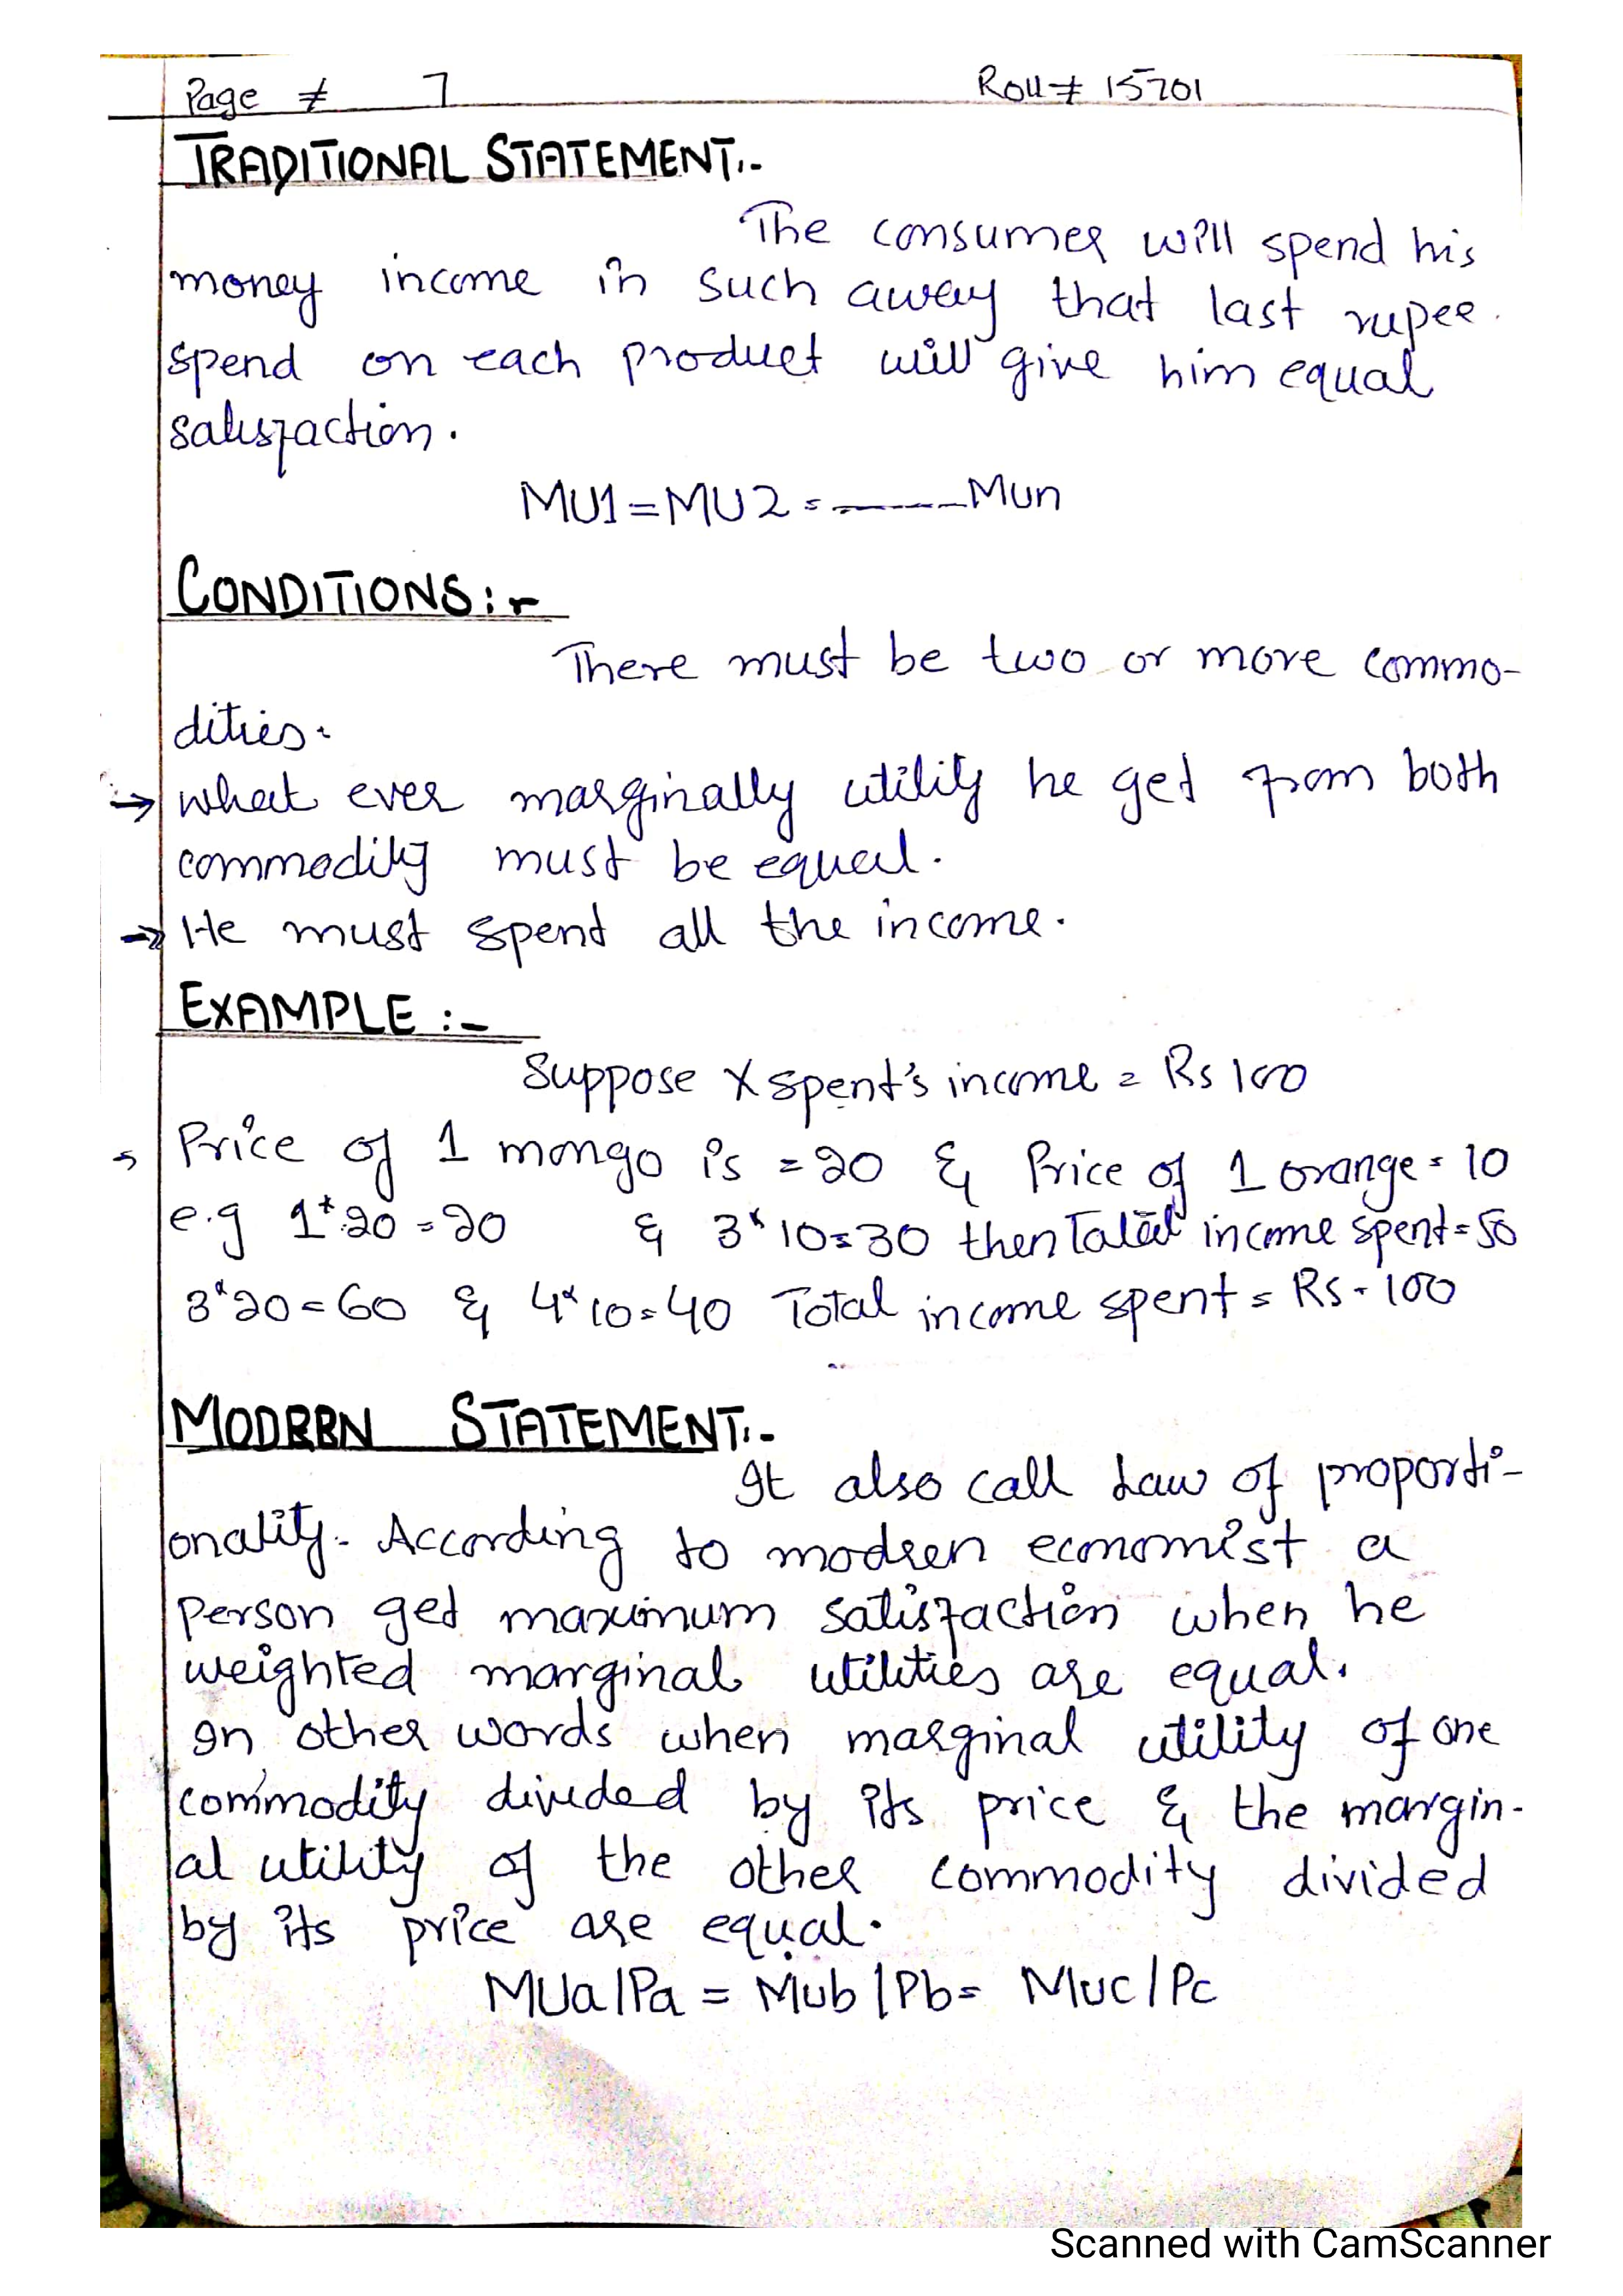 Page # 7 Roll# 15701
TRADITIONAL STATEMENT:-
The consumer will spend his
money income in such away that last rupee.
spend on each product will give him equal
satisfaction.
MU1=MU2=------Mun
CONDITIONS:-
There must be two or more commo-
dities.
→ what ever marginally utility he get from both
commodity must be equal.
→ He must spend all the income.
EXAMPLE :-
Suppose X spent's income = Rs 100
Price of 1 mango is =20 & Price of 1 orange = 10
e.g 1*20=20 & 3*10=30 then Total income spent=50
3*20=60 & 4*10=40 Total income spent = Rs-100
MODREN STATEMENT:-
It also call Law of proporti-
onality. According to modren economist a
person get maximum satisfaction when he
weighted marginal utilities are equal.
In other words when marginal utility of one
commodity divided by its price & the margin-
al utility of the other commodity divided
by its price are equal.
MUa/Pa = Mub/Pb= Muc/Pc
Scanned with CamScanner